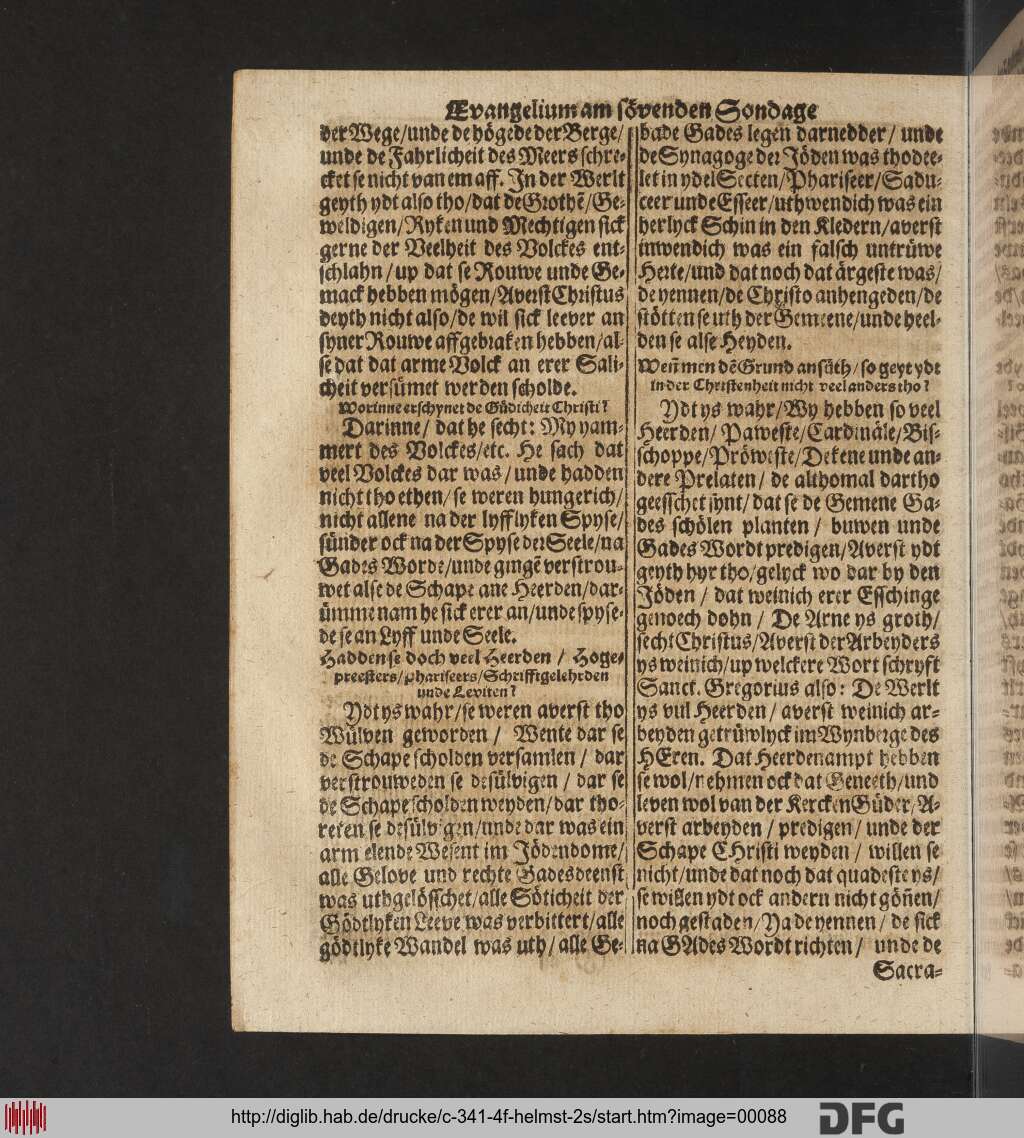 Evangelium am sövenden Sondage
der Wege/unde de högede der Berge/
unde de Fahrlicheit des Meers schre-
cket se nicht van em aff. In der Werlt
geyth ydt also tho/dat de Grothē/Ge-
weldigen/Ryken und Mechtigen sick
gerne der Veelheit des Volckes ent-
schlahn/up dat se Rouwe unde Ge-
mack hebben mögen/Averst Christus
deyth nicht also/de wil sick leever an
syner Rouwe affgebraken hebben/al-
se dat dat arme Volck an erer Sali-
cheit versümet werden scholde.
Worinne erschynet de Güdicheit Christi?
Darinne/dat he secht: My yam-
mert des Volckes/etc. He sach dat
veel Volckes dar was/unde hadden
nicht tho ethen/se weren hungerich/
nicht allene na der lyfflyken Spyse/
sünder ock na der Spyse der Seele/na
Gades Worde/unde gingē verstrou-
wet alse de Schape ane Heerden/dar-
ümme nam he sick erer an/unde spyse-
de se an Lyff unde Seele.
Hadden se doch veel Heerden/Hoge-
preesters/Phariseers/Schrifftgelehrden
unde Leviten?
Ydt ys wahr/se weren averst tho
Wülven geworden/Wente dar se
de Schape scholden versamlen/dar
verstrouweden se desülvigen/dar se
de Schape scholden weyden/dar tho-
reten se desülvigen/unde dar was ein
arm elende Wesent im Jödendome/
alle Gelove und rechte Gadesdeenst
was uthgelösschet/alle Söticheit der
Gödtlyken Leeve was verbittert/alle
gödtlyke Wandel was uth/alle Ge-
bade Gades legen darnedder/unde
de Synagoge der Jöden was thodee-
let in ydel Secten/Phariseer/Sadu-
ceer unde Esseer/uthwendich was ein
herlyck Schin in den Kledern/averst
inwendich was ein falsch untrüwe
Herte/und dat noch dat ärgeste was/
de yennen/de Christo anhengeden/de
stötten se uth der Gemeene/unde heel-
den se alse Heyden.
Weñ men dē Grund ansüth/so geyt ydt
in der Christenheit nicht veel anders tho?
Ydt ys wahr/Wy hebben so veel
Heerden/Paweste/Cardinäle/Bis-
schoppe/Pröweste/Dekene unde an-
dere Prelaten/de althomal dartho
geesschet synt/dat se de Gemene Ga-
des schölen planten/buwen unde
Gades Wordt predigen/Averst ydt
geyth hyr tho/gelyck wo dar by den
Jöden/dat weinich erer Esschinge
genoech dohn/De Arne ys groth/
secht Christus/Averst der Arbeyders
ys weinich/up welckere Wort schryft
Sanct. Gregorius also: De Werlt
ys vul Heerden/averst weinich ar-
beyden getrüwlyck im Wynberge des
HEren. Dat Heerdenampt hebben
se wol/nehmen ock dat Geneeth/und
leven wol van der Kercken Güder/A-
verst arbeyden/predigen/unde der
Schape CHristi weyden/willen se
nicht/unde dat noch dat quadeste ys/
se willen ydt ock andern nicht göñen/
noch gestaden/Ya de yennen/de sick
na GAdes Wordt richten/unde de
Sacra-
http://diglib.hab.de/drucke/c-341-4f-helmst-2s/start.htm?image=00088
DFG